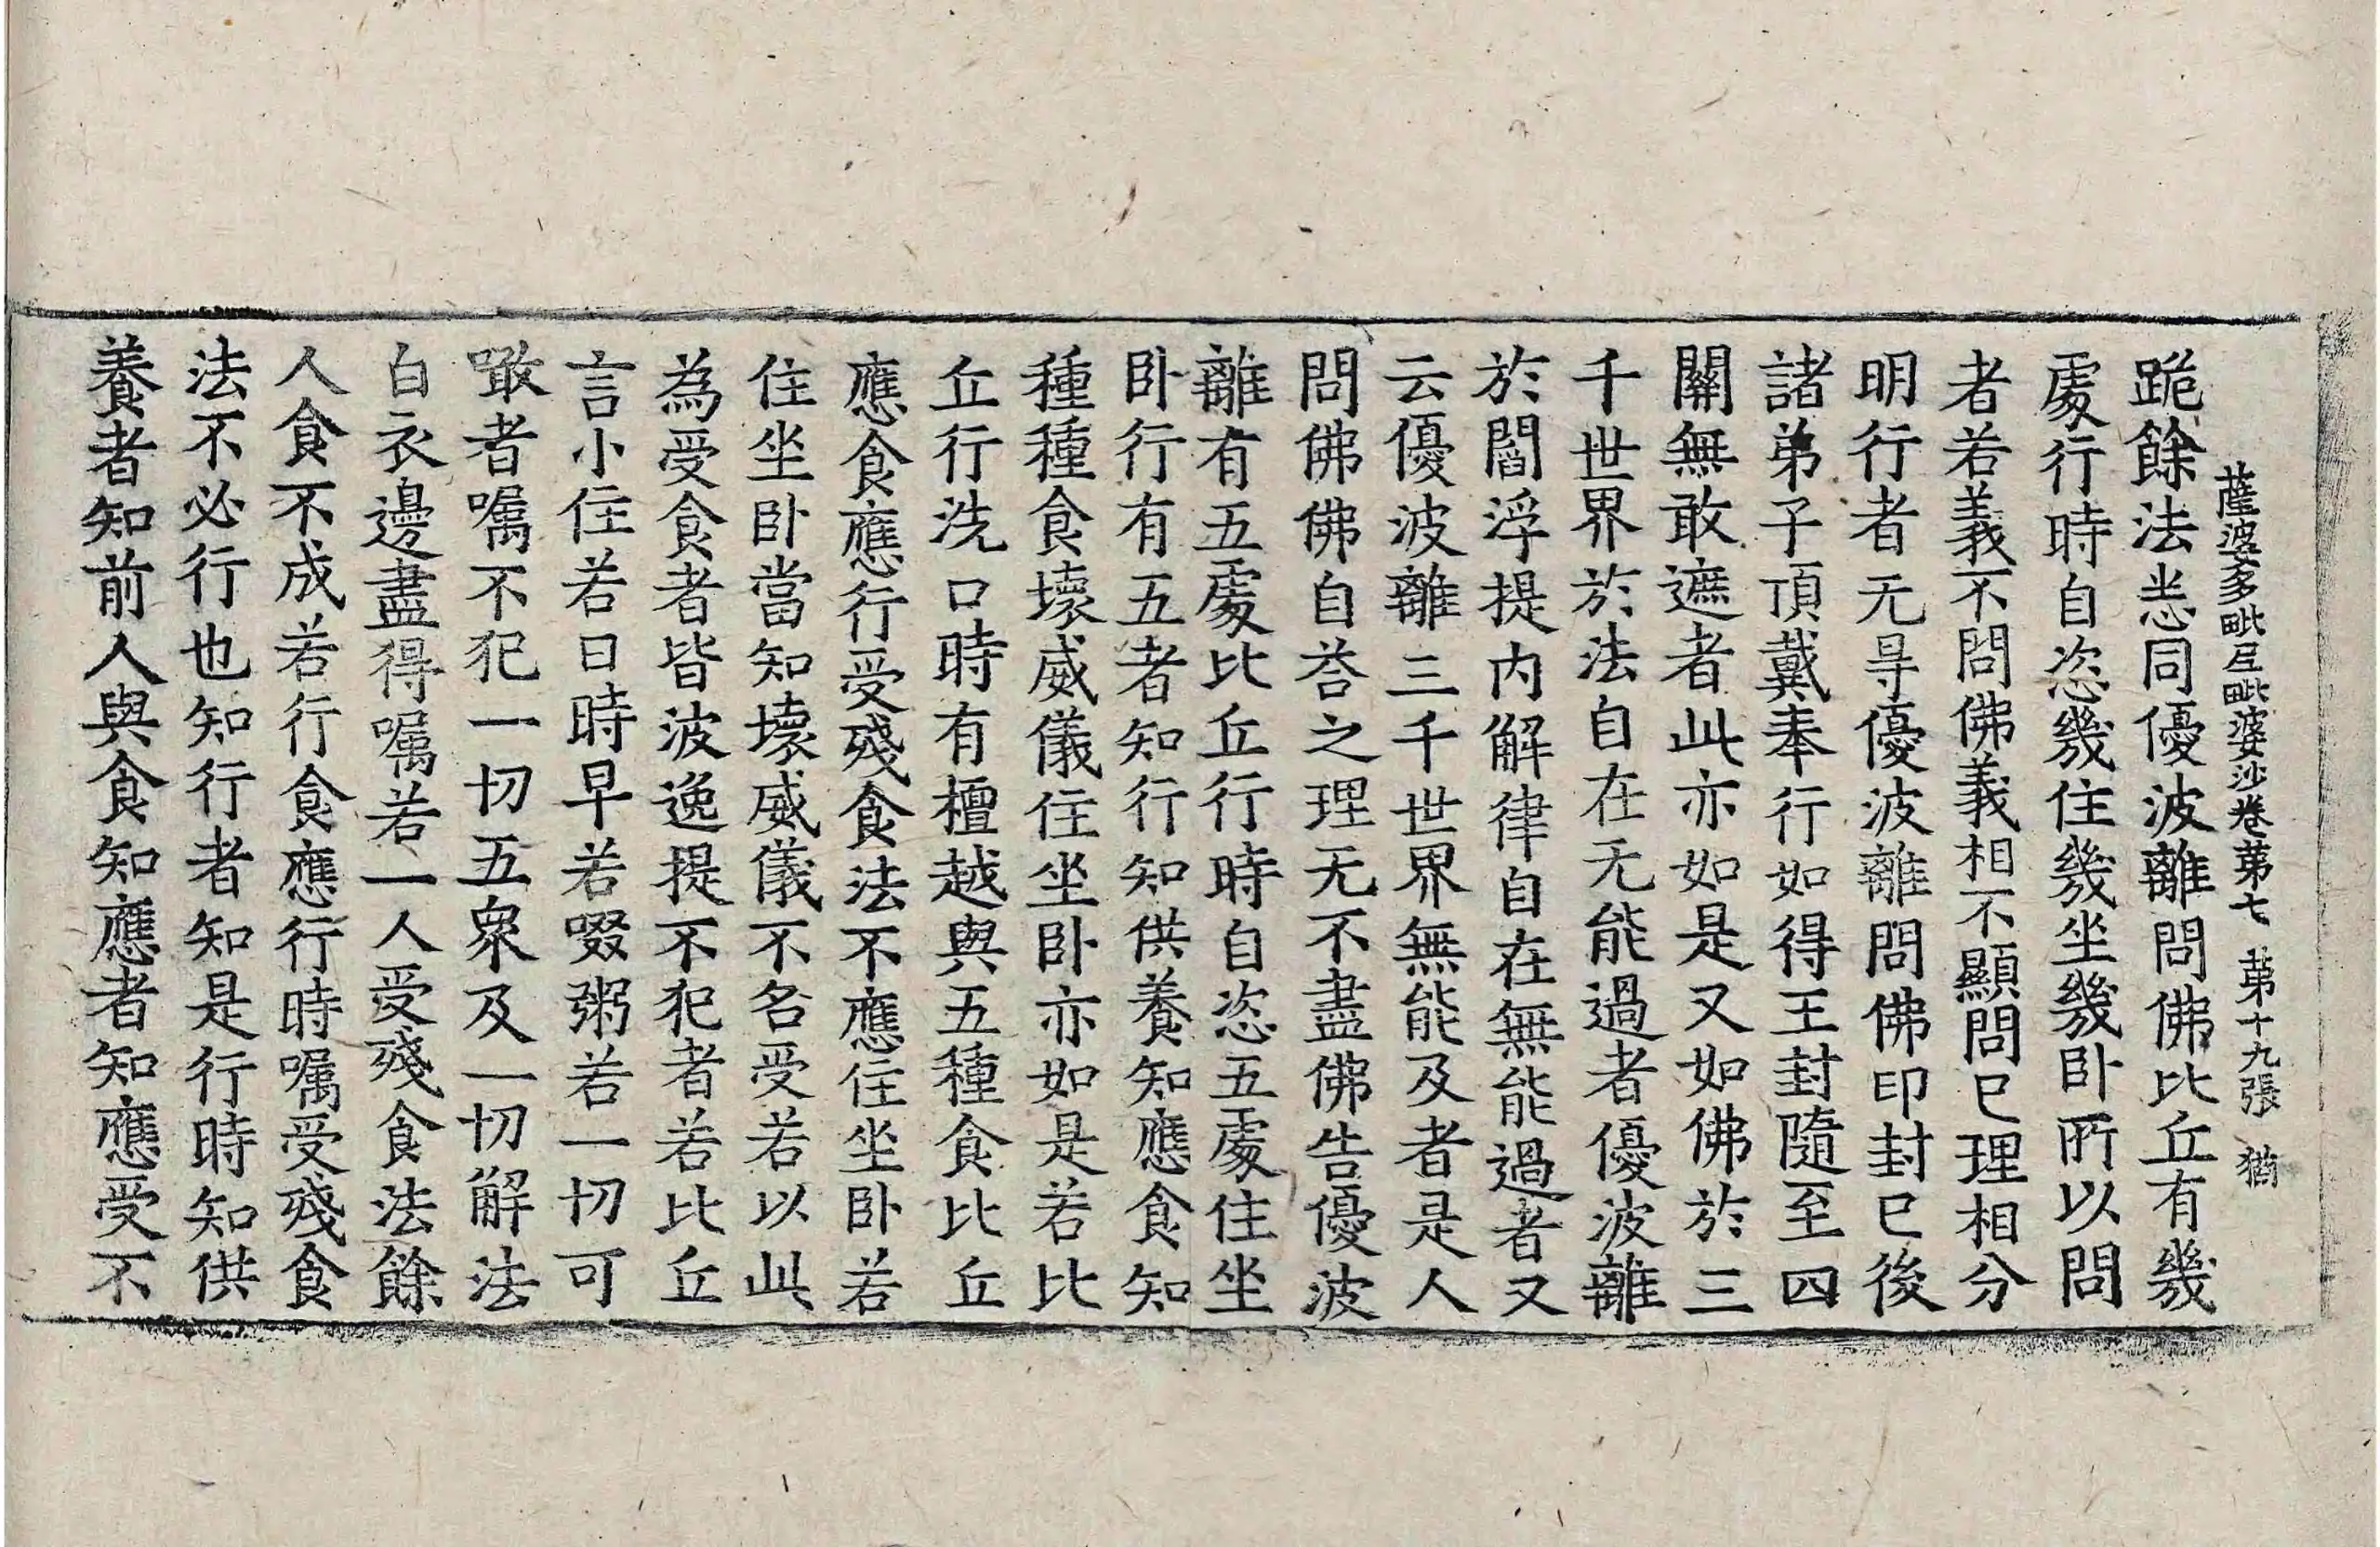 薩婆多毗尼毗婆沙卷第七 第十九張 猶
跪餘法悉同優波離問佛比丘有幾
處行時自恣幾住幾坐幾卧所以問
者若義不問佛義相不顯問已理相分
明行者无㝵優波離問佛印封已後
諸弟子頂戴奉行如得王封隨至四
關無敢遮者此亦如是又如佛於三
千世界於法自在无能過者優波離
於閻浮提内解律自在無能過者又
云優波離三千世界無能及者是人
問佛佛自荅之理无不盡佛告優波
離有五處比丘行時自恣五處住坐
卧行有五者知行知供養知應食知
種種食壞威儀住坐卧亦如是若比
丘行洗口時有檀越與五種食比丘
應食應行受殘食法不應住坐卧若
住坐卧當知壞威儀不名受若以此
為受食者皆波逸提不犯者若比丘
言小住若日時早若啜粥若一切可
噉者囑不犯一切五衆及一切解法
白衣邊盡得囑若一人受殘食法餘
人食不成若行食應行時囑受殘食
法不必行也知行者知是行時知供
養者知前人與食知應者知應受不